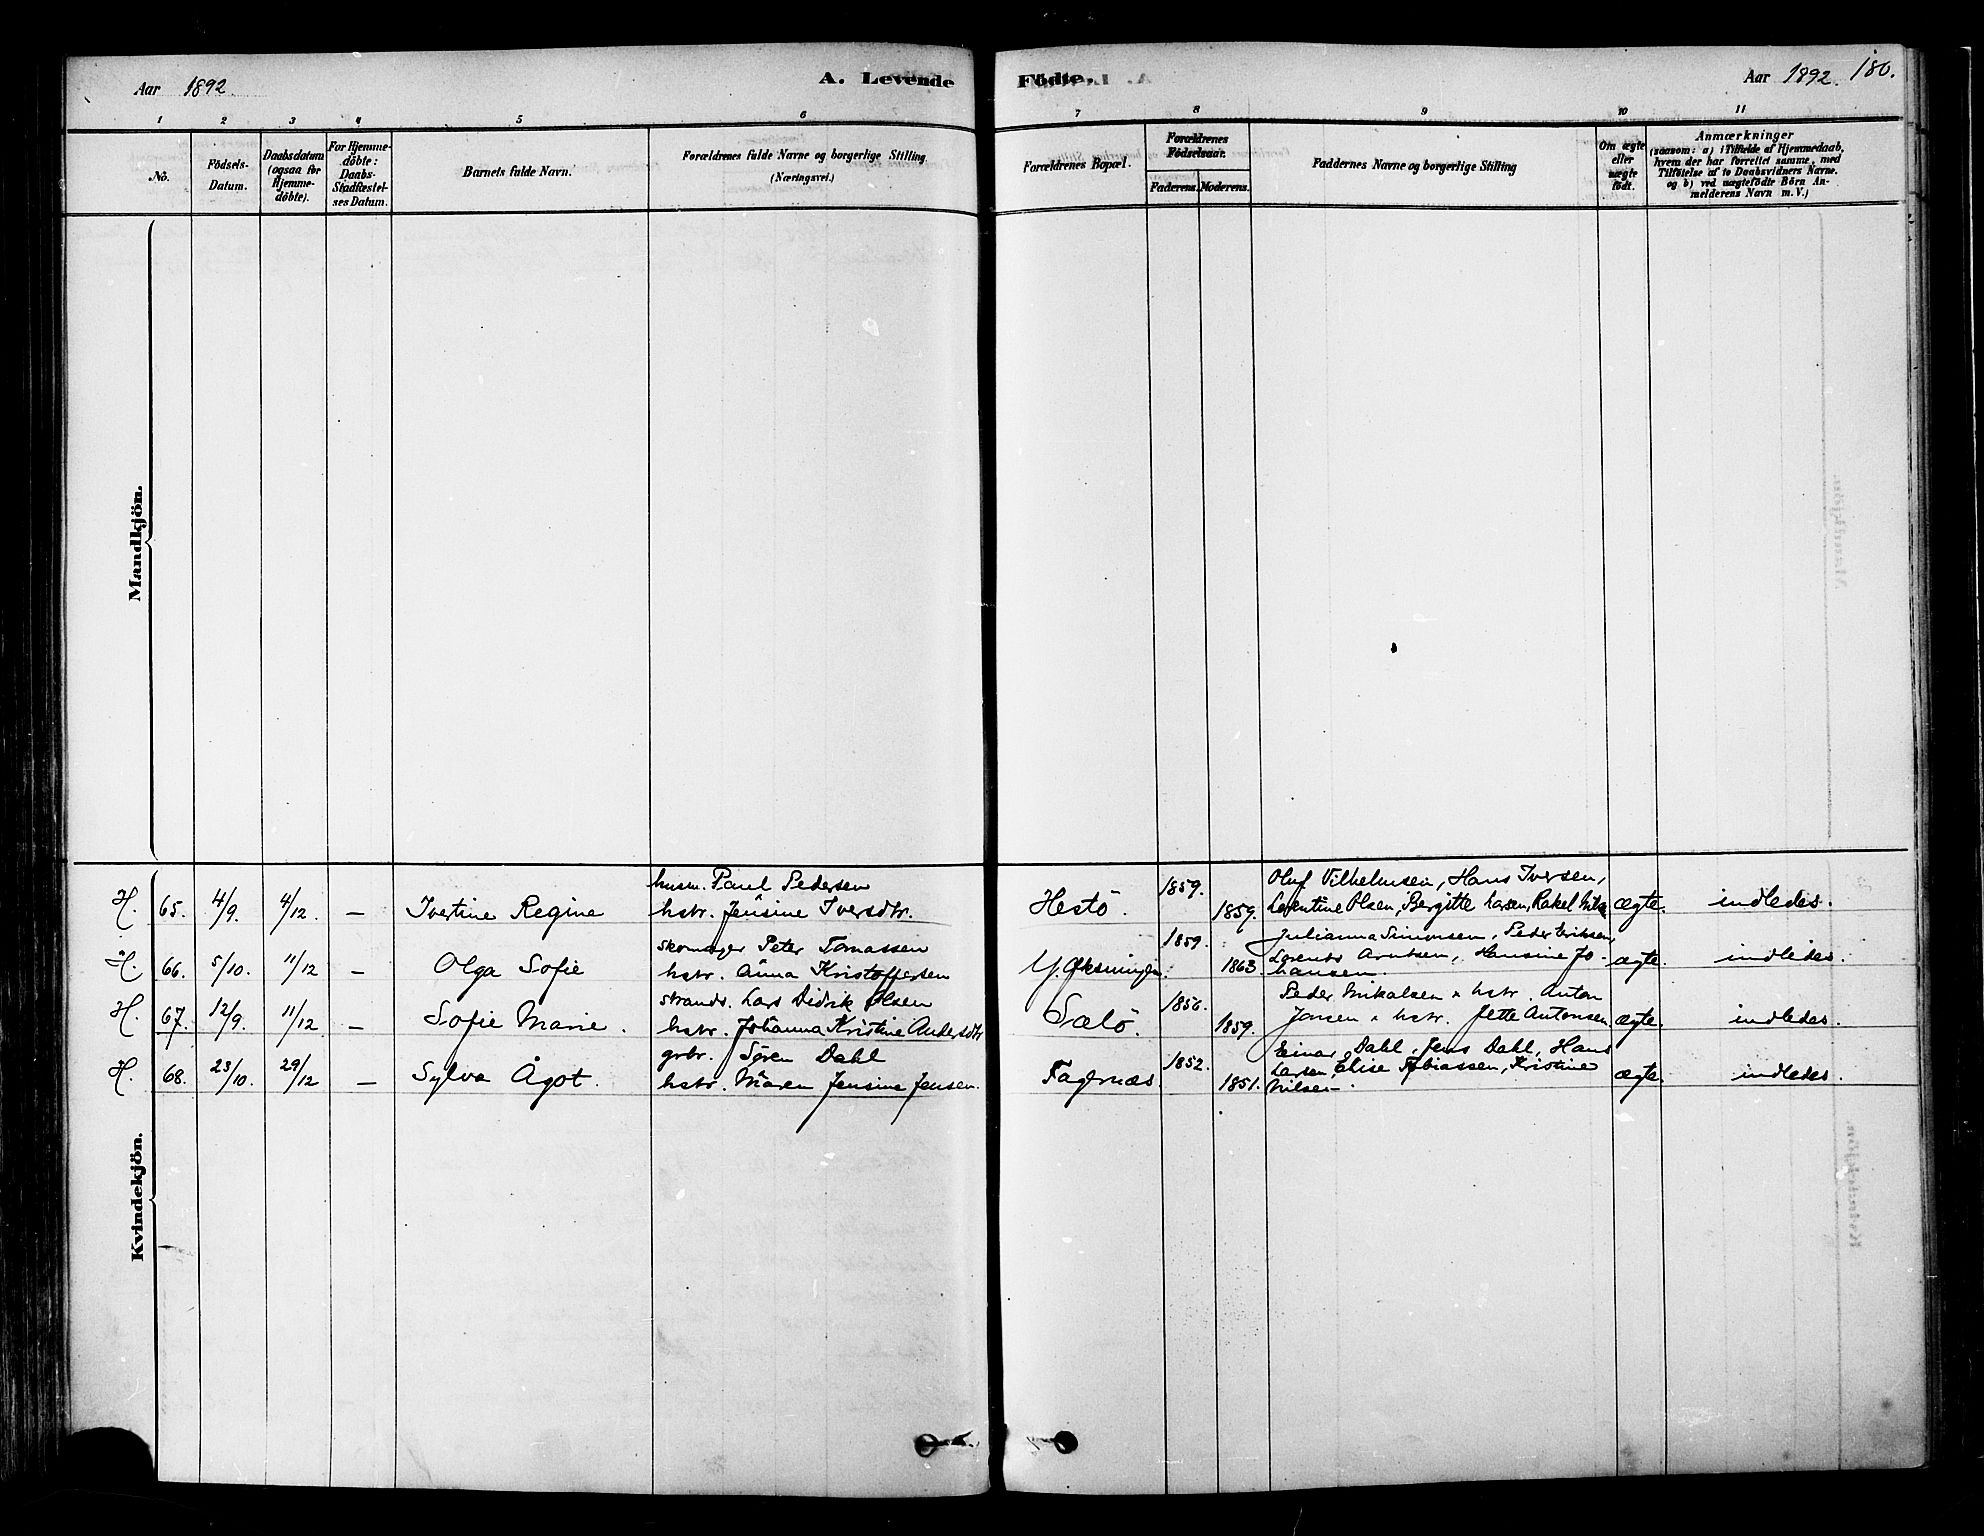 Aar 1892.
A. Levende
Födte.
Aar 1892. 180.
1 2 3 4 5 6 7 8 9 10 11
No.
Födsels-
Datum.
Daabsdatum
(ogsaa for
Hjemme-
döbte).
For Hjemme-
döbte:
Daabs-
Stadfæstel-
ses Datum.
Barnets fulde Navn.
Forældrenes fulde Navne og borgerlige Stilling
(Næringsvei.)
Forældrenes Bopæl.
Forældrenes
Födselsaar.
Faderens. Moderens.
Faddernes Navne og borgerlige Stilling
Om ægte
eller
uægte
födt.
Anmærkninger
(saasom: a) i Tilfælde af Hjemmedaab,
hvem der har forrettet samme, med
Tilföielse af to Daabsvidners Navne.
og b) ved uægtefödte Börn An-
melderens Navn m. V.)
Mandkjön.
Kvindekjön.
husm. Paul Pedersen 1859. Oluf Vilhelmsen, Hans Iversen,
H. 65. 4/9. 4/12. — Ivertine Regine hstr. Jensine Iversdtr. Hestö. 1859. Lorentine Olsen, Bergitte Larsen, Rakel ægte. indledes.
skomager Peter Tomassen 1859. Julianna Simonsen, Peder Eriksen,
H. 66. 5/10. 11/12 — Olga Sofie hstr. Anna Kristoffersen Y. Øksningen. 1863. Lorents Arntsen, Hansine Jo- ægte. indledes.
hansen.
strands. Lars Didrik Olsen 1856. Peder Mikalsen & hstr. Anton
H. 67. 12/9. 11/12 — Sofie Marie. hstr. Johanna Kristine Andersdtr Sælö. 1859. Jansen & hstr. Jette Antonsen ægte. indledes.
grbr. Sören Dahl 1852. Einar Dahl, Jens Dahl, Hans
H. 68. 23/10. 29/12 — Sylva Ågot. hstr. Maren Jensine Jensen. Fagernæs. 1851. Larsen, Elise Tobiassen, Kristine ægte. indledes.
Nilsen.